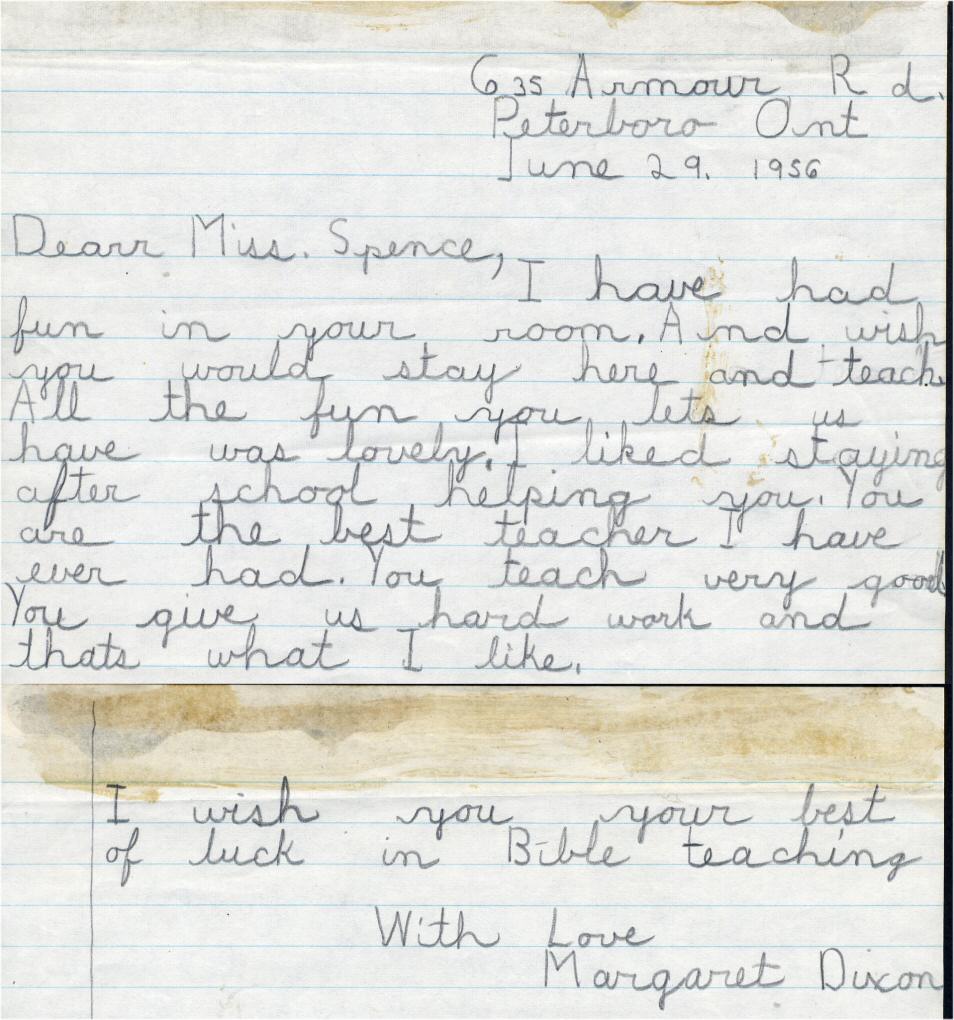 635 Armour Rd.
Peterboro Ont
June 29. 1956
Dearr Miss. Spence,
I have had
fun in your room. And wish
you would stay here and teach
All the fun you lets us
have was lovely. I liked staying
after school helping you. You
are the best teacher I have
ever had. You teach very good
You give us hard work and
thats what I like.
I wish you your best
of luck in Bible teaching
With Love
Margaret Dixon